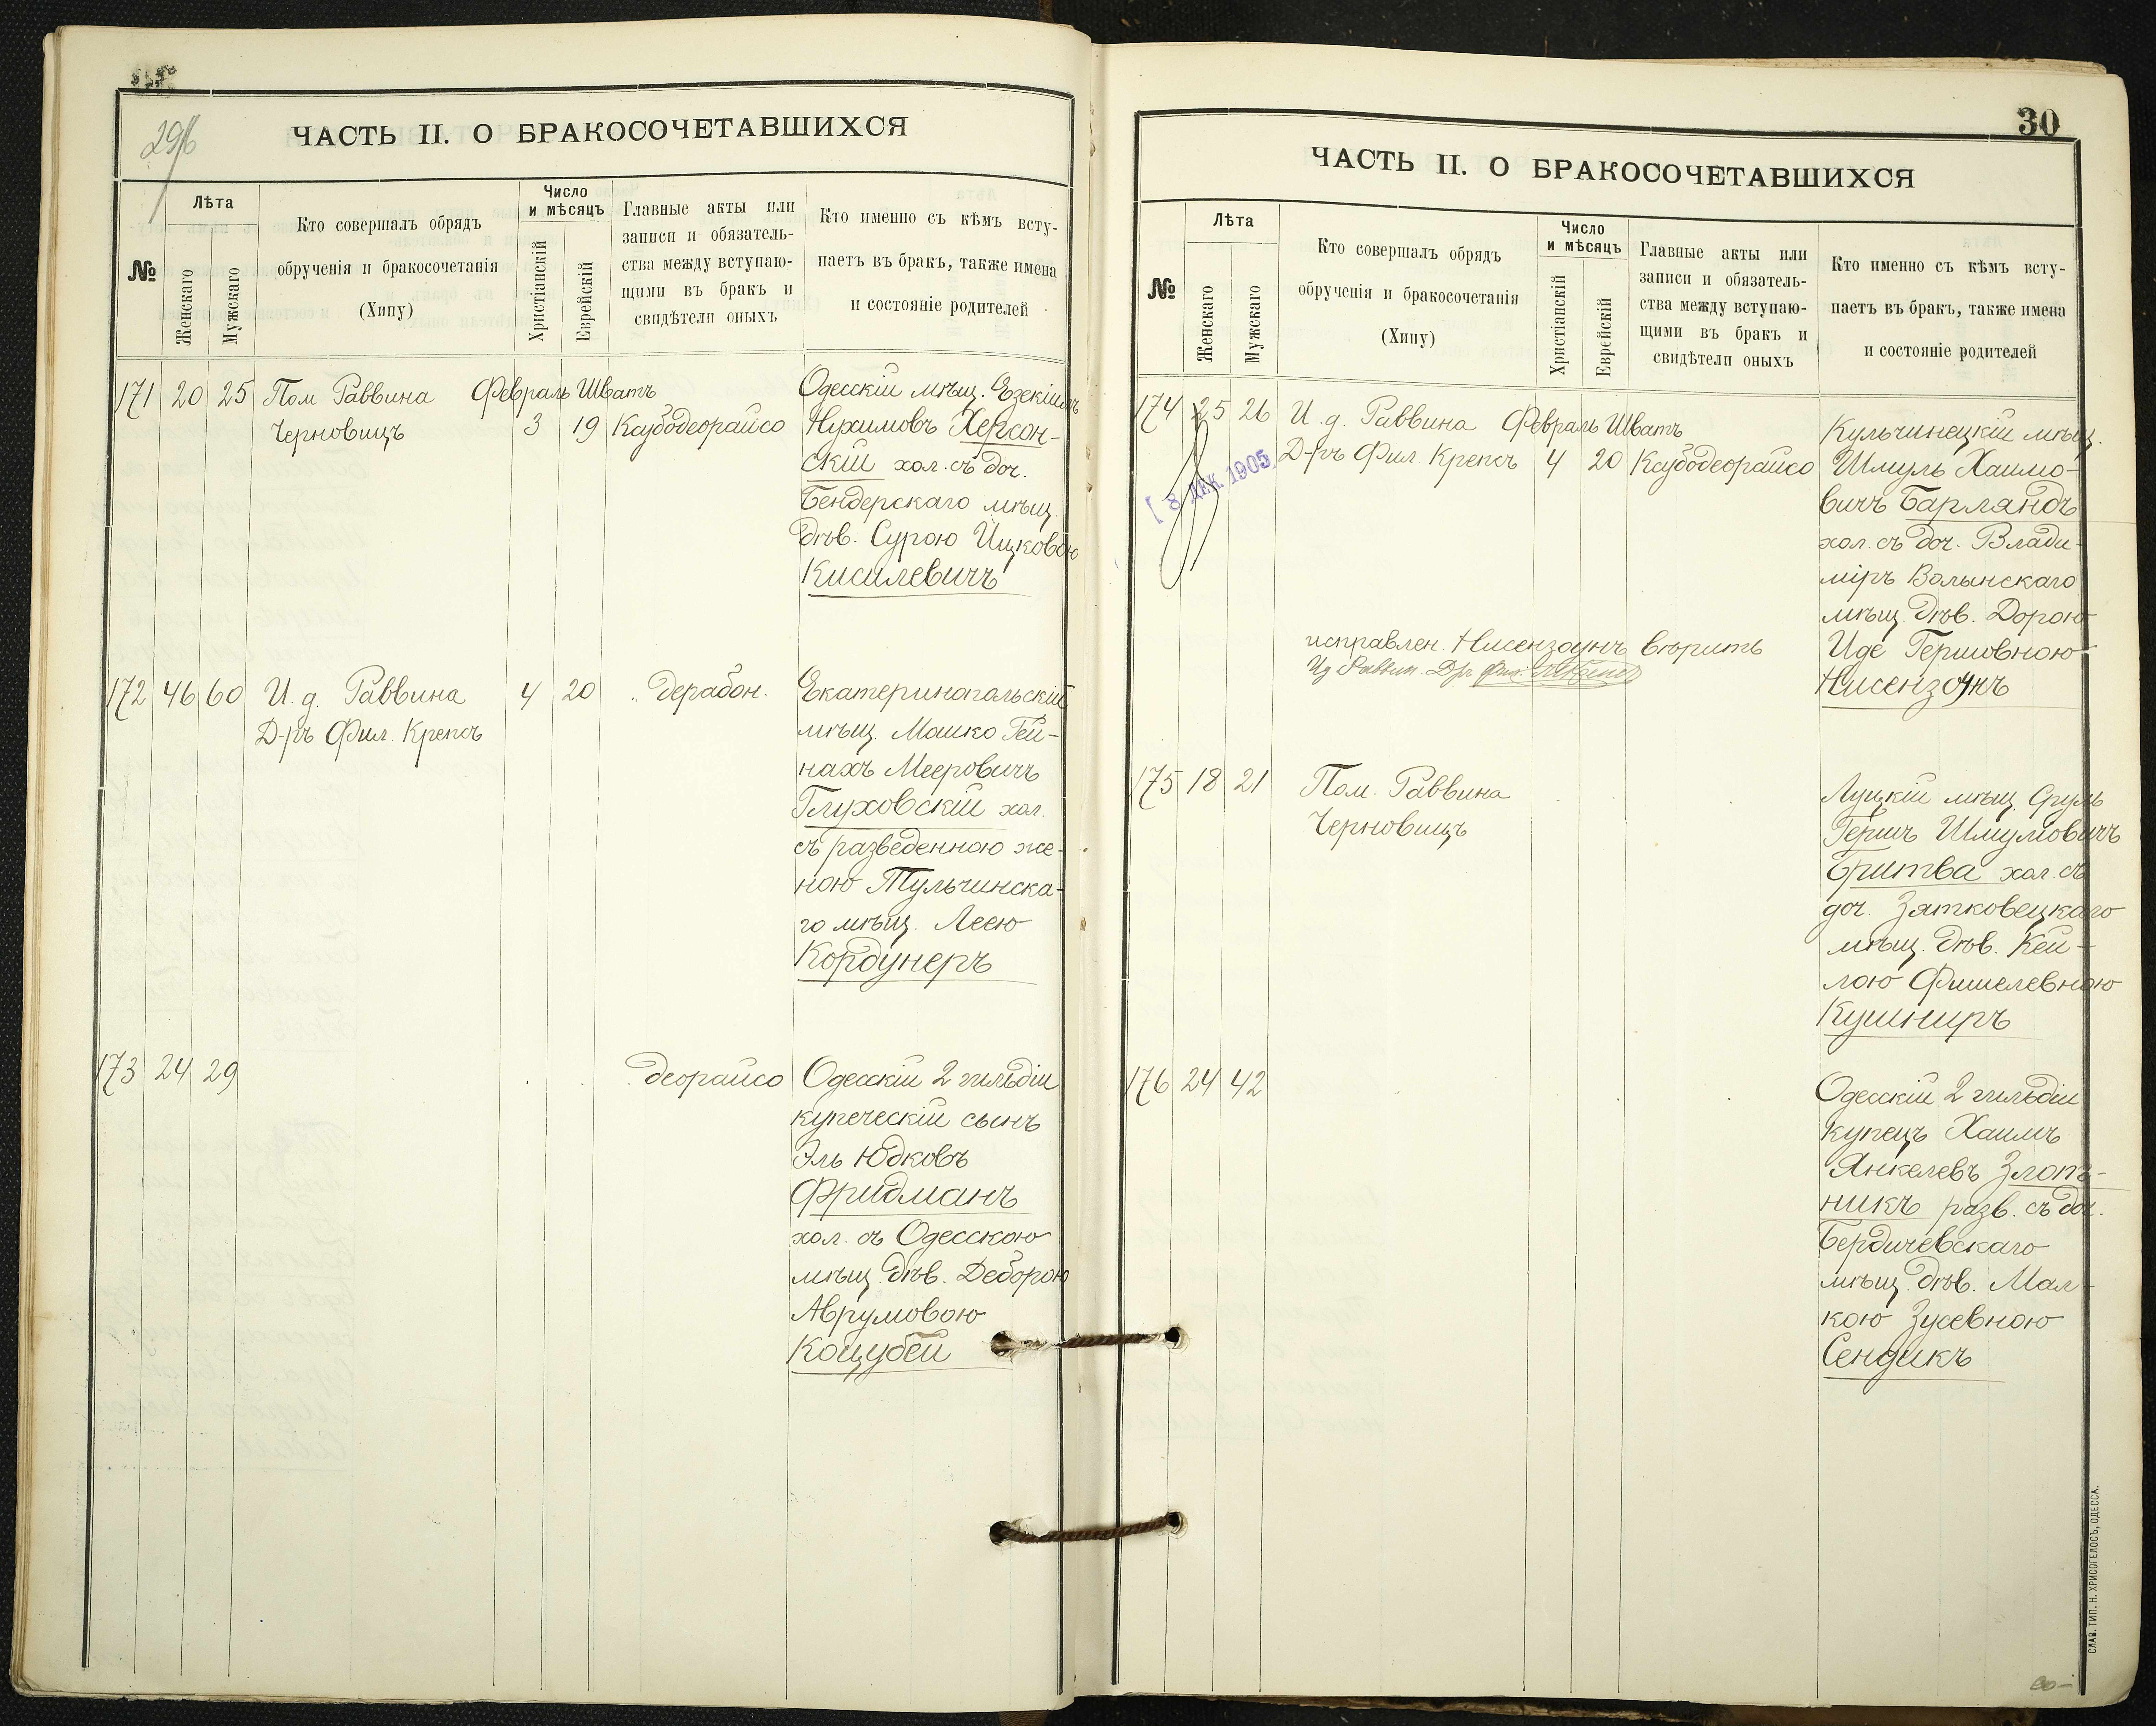 296
ЧАСТЬ II. О БРАКОСОЧЕТАВШИХСЯ
№
Лѣта
Женскаго
Мужскаго
Кто совершалъ обрядъ
обрученія и бракосочетанія
(Хипу)
Число
и мѣсяцъ
Христіанскій
Еврейскій
Главные акты или
записи и обязатель-
ства между вступаю-
щими въ бракъ и
свидѣтели оныхъ
Кто именно съ кѣмъ всту-
паетъ въ бракъ, также имена
и состояніе родителей
171 20 25 Пом Раввина Февраль Шватъ
Черновицъ 3 19 Каубодеорайсо
Одесскій мѣщ. Езекіиль
Нухимовъ Херсон-
скій хол. съ доч.
Бендерскаго мѣщ.
дѣв. Сурою Ицковою
Кисилевичъ
172 46 60 И. д. Раввина 4 20 дерабон.
Д-ръ Фил. Крепсъ
Екатеринопольскій
мѣщ. Мошко Гей-
нахъ Мееровичъ
Глуховскій хол.
съ разведенною же-
ною Тульчинска-
го мѣщ. Леею
Кордунеръ
173 24 29 деорайсо
Одесскій 2 гильдіи
купеческій сынъ
Эль Юдковъ
Фридманъ
хол. съ Одесскою
мѣщ. дѣв. Деборою
Аврумовою
Коцубей
30
ЧАСТЬ II. О БРАКОСОЧЕТАВШИХСЯ
№
Лѣта
Женскаго
Мужскаго
Кто совершалъ обрядъ
обрученія и бракосочетанія
(Хипу)
Число
и мѣсяцъ
Христіанскій
Еврейскій
Главные акты или
записи и обязатель-
ства между вступаю-
щими въ бракъ и
свидѣтели оныхъ
Кто именно съ кѣмъ всту-
паетъ въ бракъ, также имена
и состояніе родителей
174 25 26 И. д. Раввина Февраль Шватъ
Д-ръ Фил. Крепсъ 4 20 Каубодеорайсо
8 ДЕК. 1905
Кульчинецкій мѣщ.
Шмуль Хаимо-
вичъ Барляндъ
хол. съ доч. Влади-
міръ Волынскаго
мѣщ. дѣв. Дорою
Иде Гершовною
Нисензонъ
исправлен. Нисензоунъ вѣрить
Ид Раввин. Д-ръ Фил.
175 18 21 Пом. Раввина
Черновицъ
Луцкій мѣщ. Сруль
Гершъ Шмулювичъ
Бритва хол. съ
доч. Зятковецкаго
мѣщ. дѣв. Кей-
лою Фишелевною
Кушниръ
176 24 42
Одесскій 2 гильдіи
купецъ Хаимъ
Янкелевъ Злот-
никъ разв. съ доч.
Бердичевскаго
мѣщ. дѣв. Мал-
кою Зусевною
Сендикъ
СЛАВ. ТИП. Н. ХРИСОГЕЛОСЪ, ОДЕССА.